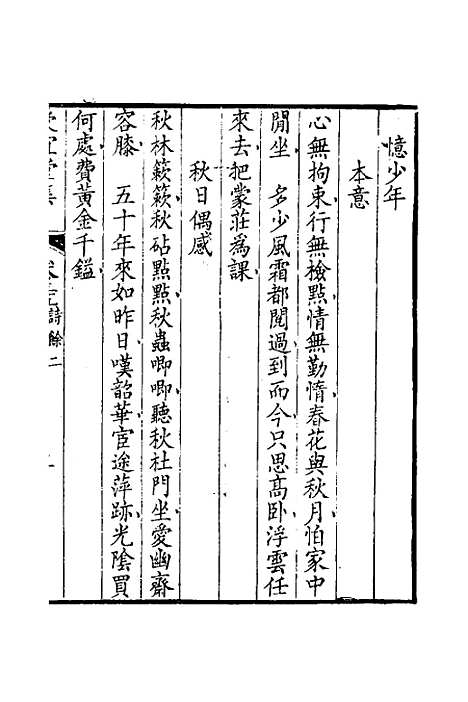 憶少年
本意
心無拘束行無檢點情無勤惰春花與秋月怕家中
閒坐　多少風霜都閱過到而今只思高臥浮雲任
來去把蒙莊爲課
秋日偶感
秋林簌簌秋砧點點秋蟲唧唧聽秋杜門坐愛幽齋
容膝　五十年來如昨日嘆韶華宦途萍跡光陰買
何處費黃金千鎰
詩餘二